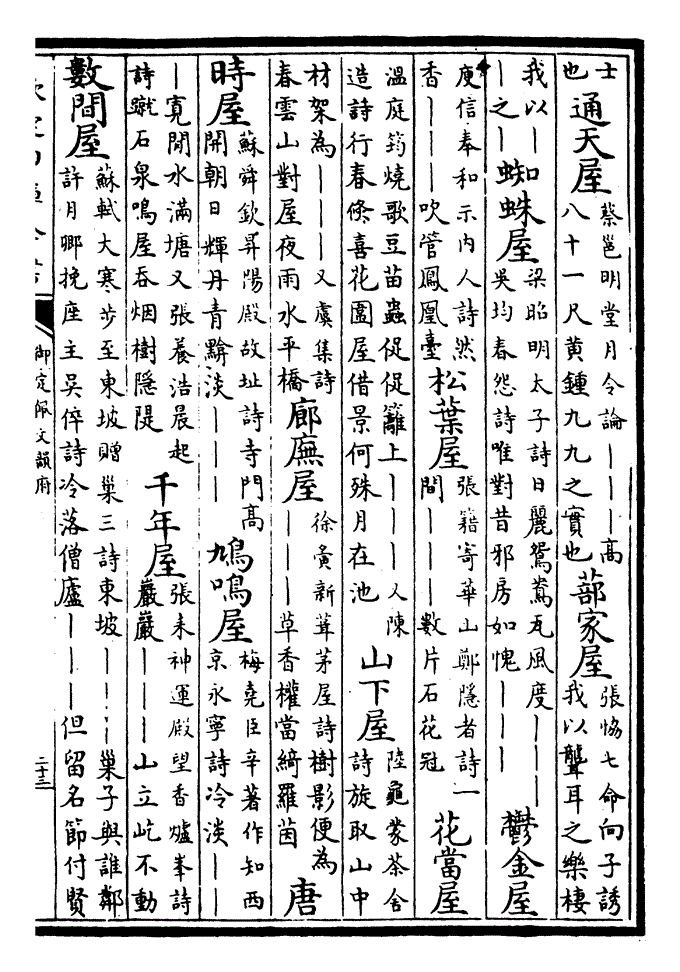 士也　通天屋　蔡邕明堂月令論｜｜｜高八十一尺黄鍾九九之實也　蔀家屋　張協七命向子誘我以聾耳之樂棲
我以｜｜之｜　蜘蛛屋　梁昭明太子詩日麗鴛鴦瓦風度｜｜｜吳均春怨詩唯對昔邪房如愧｜｜｜　鬱金屋
庾信奉和示内人詩然香｜｜｜吹管鳳凰臺　松葉屋　張籍寄華山鄭隱者詩一間｜｜｜數片石花冠　花當屋
温庭筠燒歌豆苗蟲促促籬上｜｜｜人陳造詩行春倏喜花圍屋借景何殊月在池　山下屋　陸龜蒙茶舍詩旋取山中
材架為｜｜｜又虞集詩春雲山對屋夜雨水平橋　廊廡屋　徐夤新葺茅屋詩樹影便為｜｜｜草香權當綺羅茵　唐
時屋　蘇舜欽昇陽殿故址詩寺門髙開朝日輝丹青黯淡｜｜｜　鳩鳴屋　梅堯臣辛著作知西京永寧詩冷淡｜｜
｜寛閒水滿塘又張養浩晨起詩蹴石泉鳴屋吞烟樹隠隄　千年屋　張耒神運殿望香爐峯詩巖巖｜｜｜山立屹不動
數間屋　蘇軾大寒步至東坡贈巢三詩東坡｜｜｜巢子與誰鄰許月卿挽座主吳倅詩冷落僧廬｜｜｜但留名節付賢
欽定四庫全書　御定佩文韻府　二十三